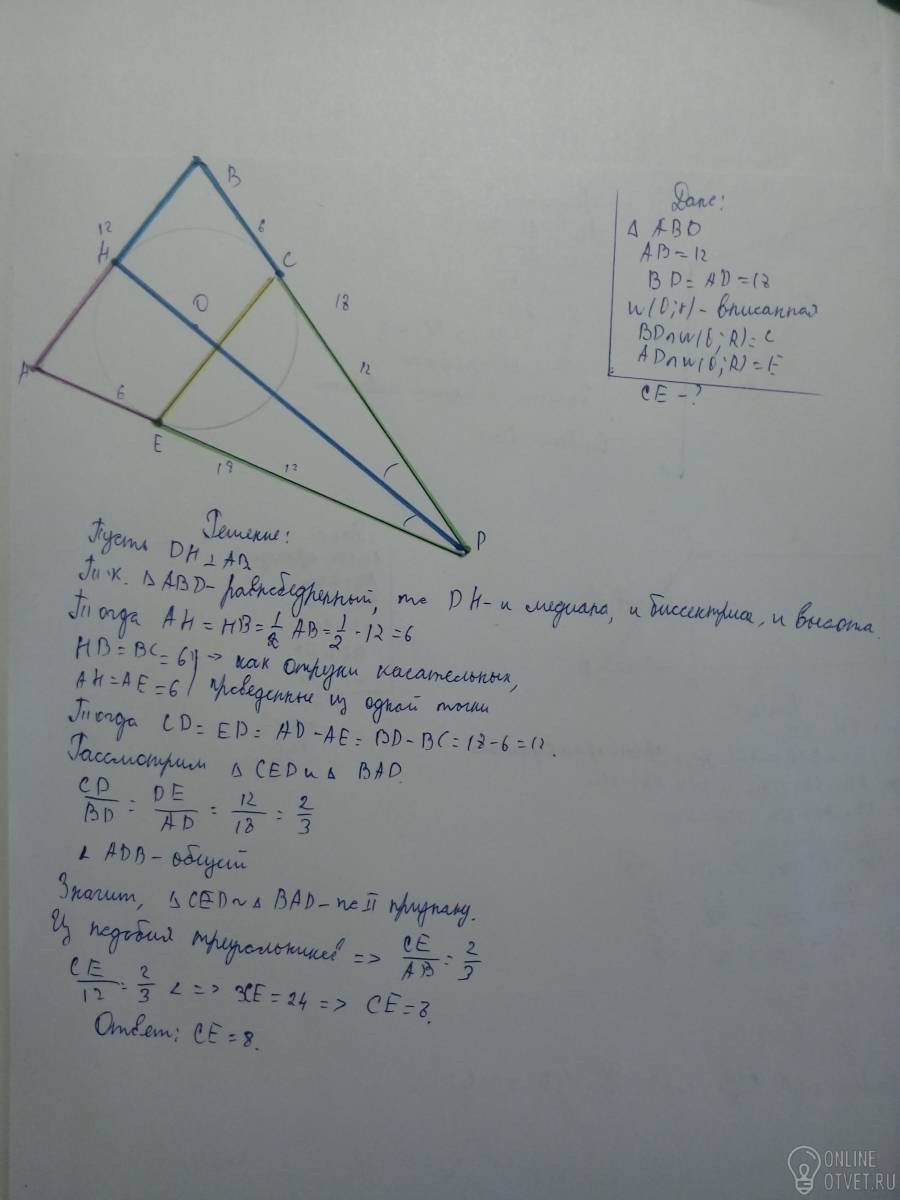 B
12
6
H
C
O
18
12
A
6
E
18
12
D
Дано:
Δ ABD
AB = 12
BD = AD = 18
w(O;r) - вписанная
BD∩w(O;R) = C
AD∩w(O;R) = E
CE - ?
Решение:
Пусть DH ⊥ AB
Т.к. Δ ABD - равнобедренный, то DH - и медиана, и биссектриса, и высота.
Тогда AH = HB = 1/2 AB = 1/2 · 12 = 6
HB = BC = 6 } => как отрезки касательных,
AH = AE = 6 } проведенные из одной точки
Тогда CD = ED = AD - AE = BD - BC = 18 - 6 = 12.
Рассмотрим Δ CED и Δ BAD.
CD/BD = DE/AD = 12/18 = 2/3
∠ ADB - общий
Значит, Δ CED ~ Δ BAD - по II признаку.
Из подобия треугольников => CE/AB = 2/3
CE/12 = 2/3 <=> 3CE = 24 => CE = 8.
Ответ: CE = 8.
ONLINE
OTVET.RU